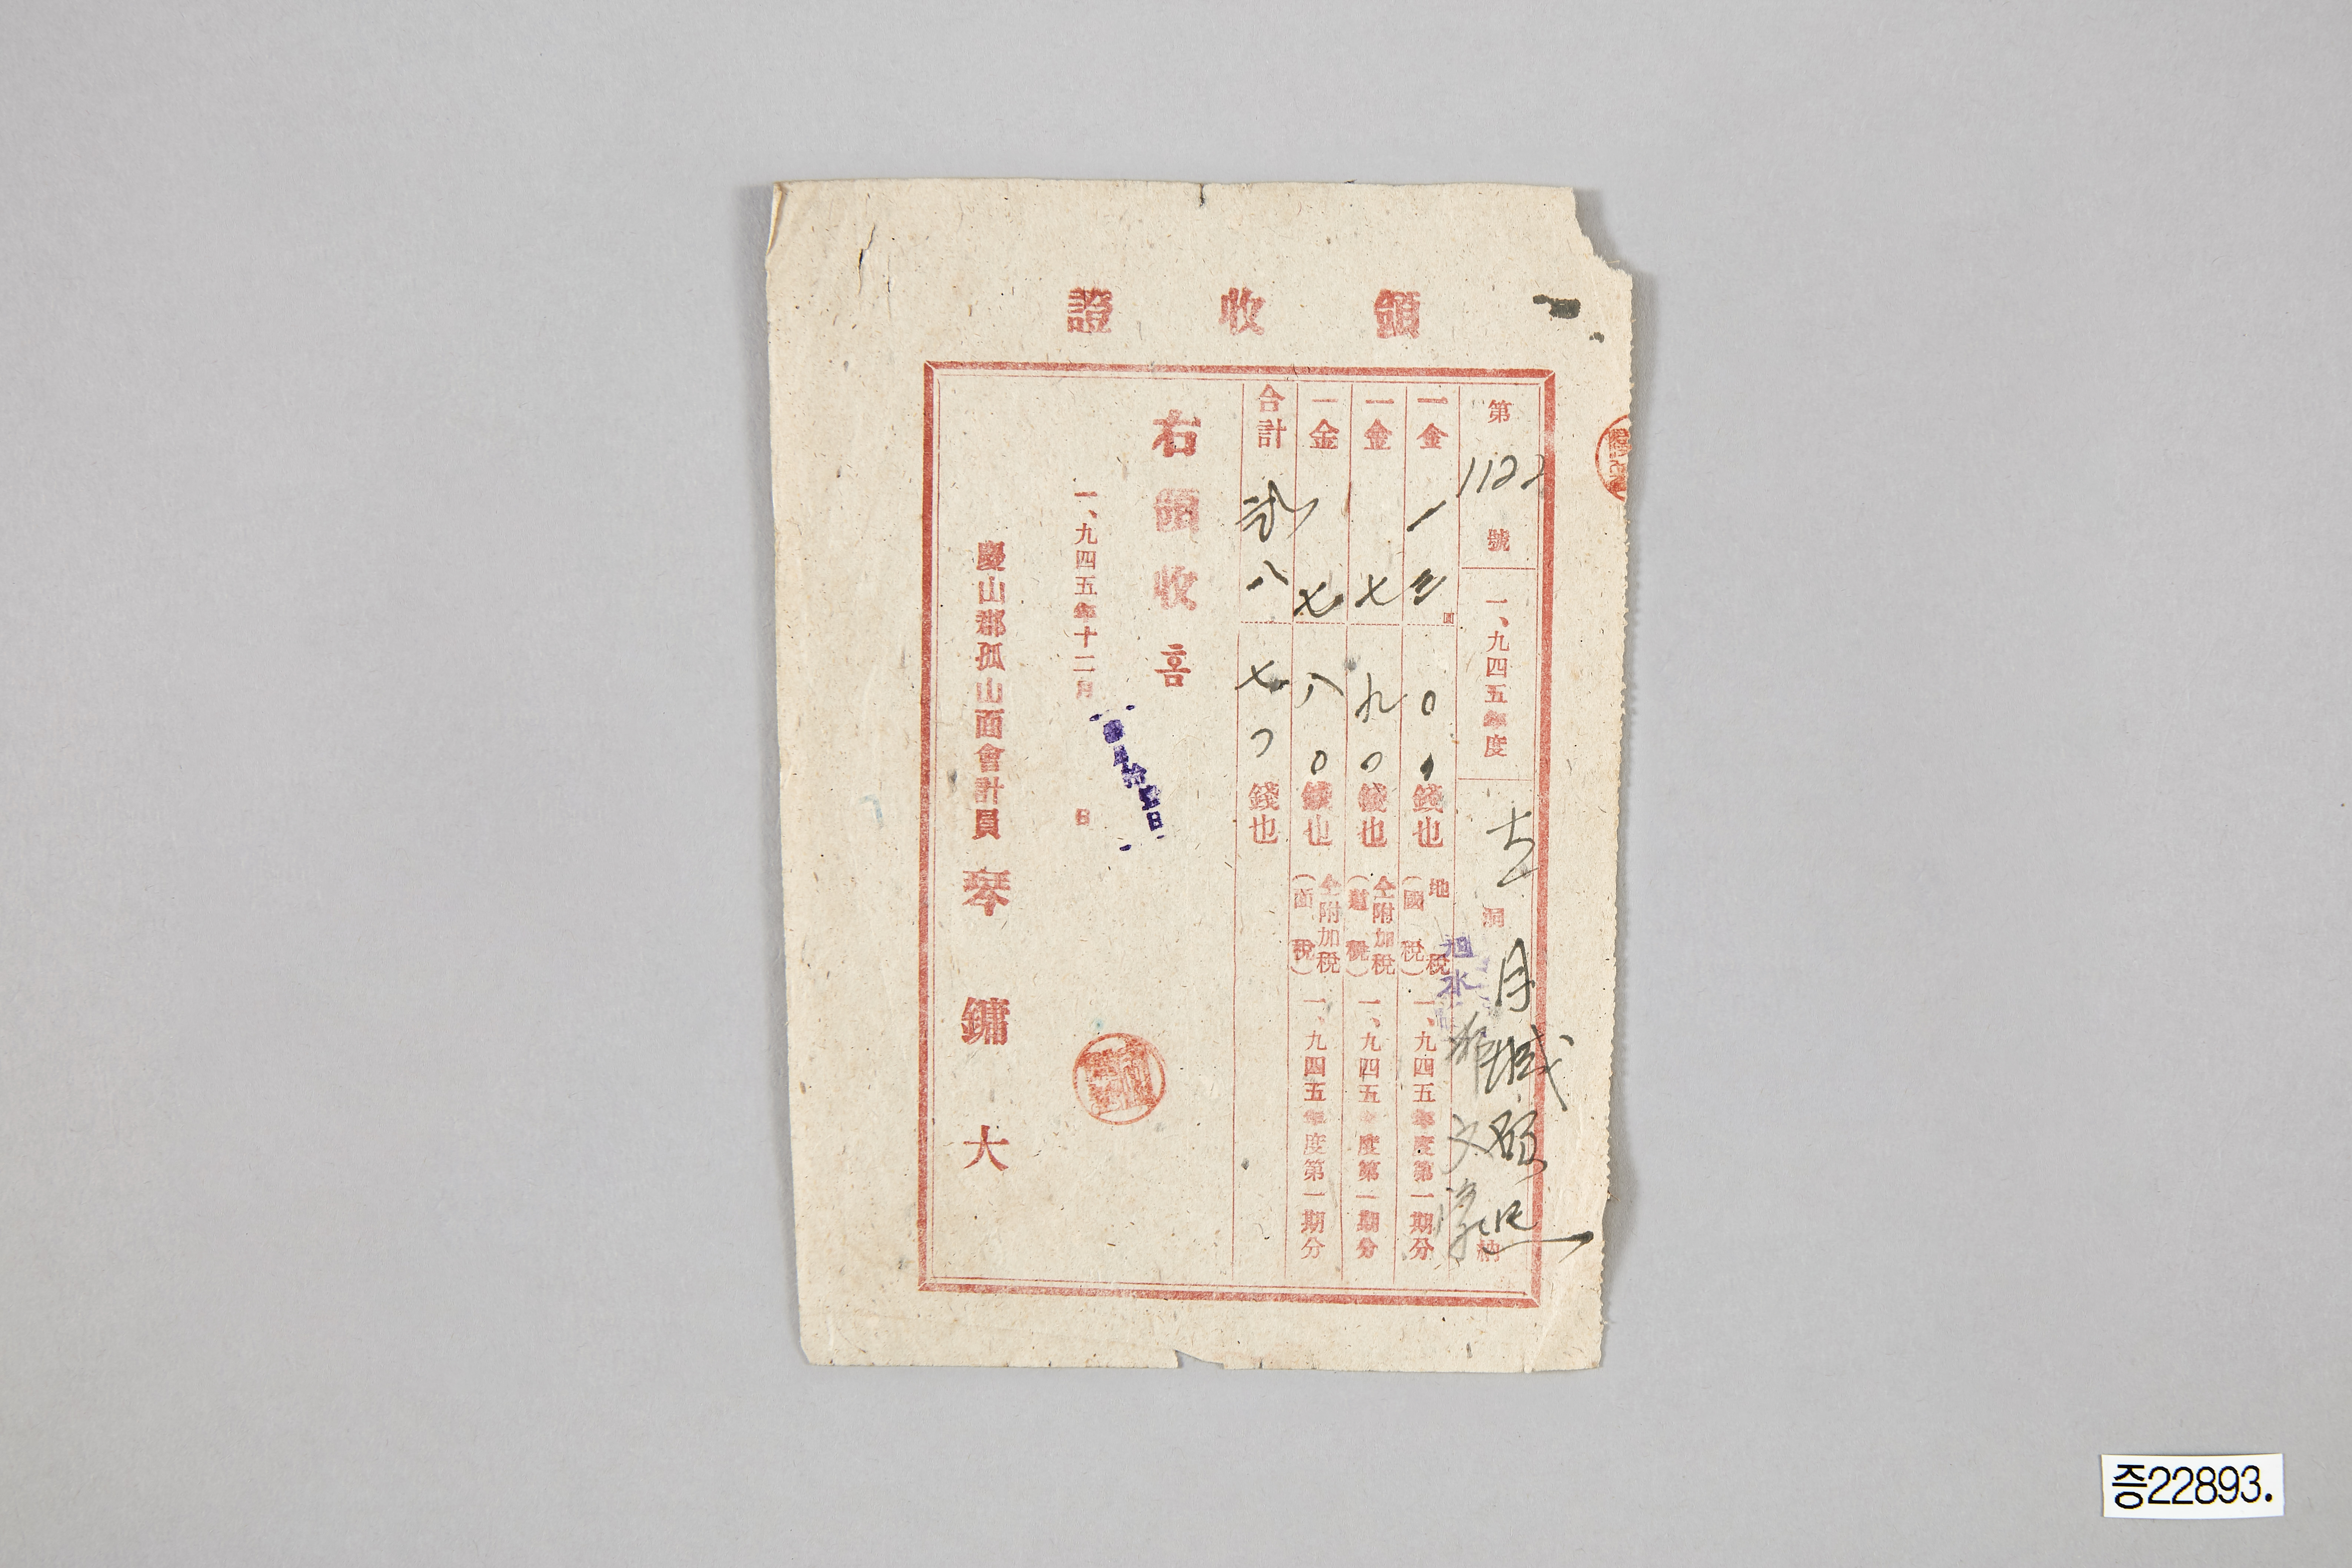 領收證
第1122號 一、九四五年度 洞 月城 納
一金 一三圓 〇〇錢也 地稅(國稅) 一、九四五年度第一期分
一金 七 九〇錢也 仝附加稅(道稅) 一、九四五年度第一期分
一金 七 八〇錢也 仝附加稅(面稅) 一、九四五年度第一期分
合計 弐八 七〇錢也
右領收홈
一、九四五年十二月 日
慶山郡孤山面會計員 琴鏞大
증22893.